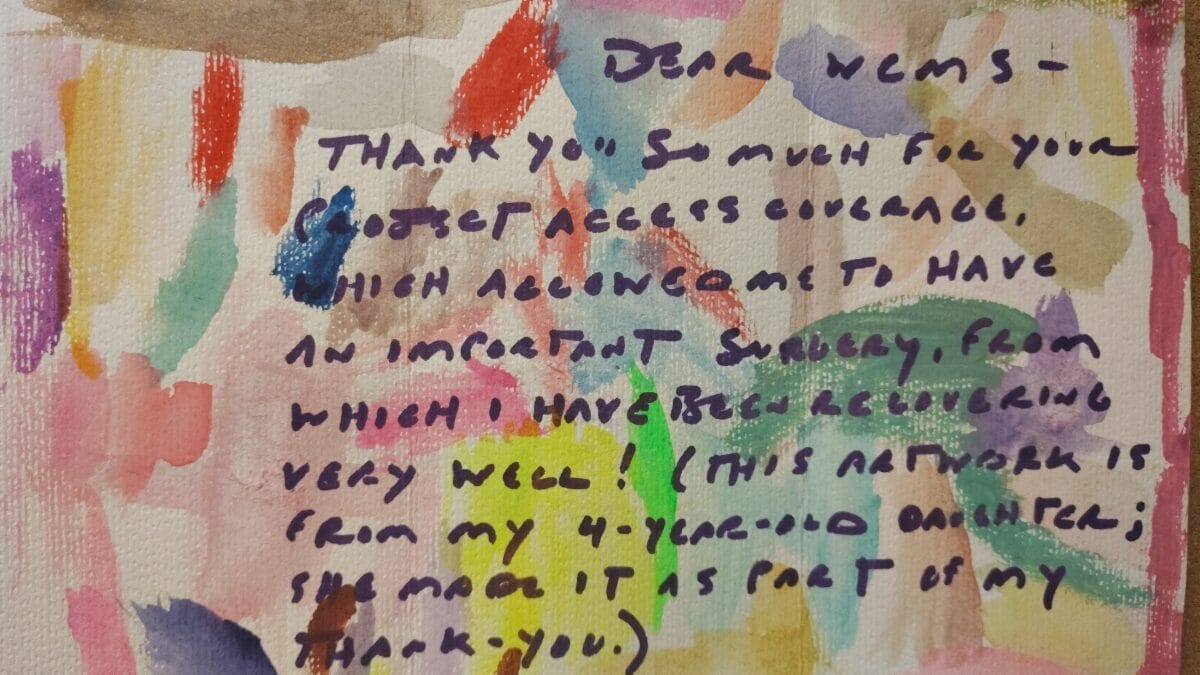 DEAR WCMS -
THANK YOU SO MUCH FOR YOUR
PROJECT ACCESS COVERAGE,
WHICH ALLOWED ME TO HAVE
AN IMPORTANT SURGERY, FROM
WHICH I HAVE BEEN RECOVERING
VERY WELL! (THIS ARTWORK IS
FROM MY 4-YEAR-OLD DAUGHTER;
SHE MADE IT AS PART OF MY
THANK-YOU.)